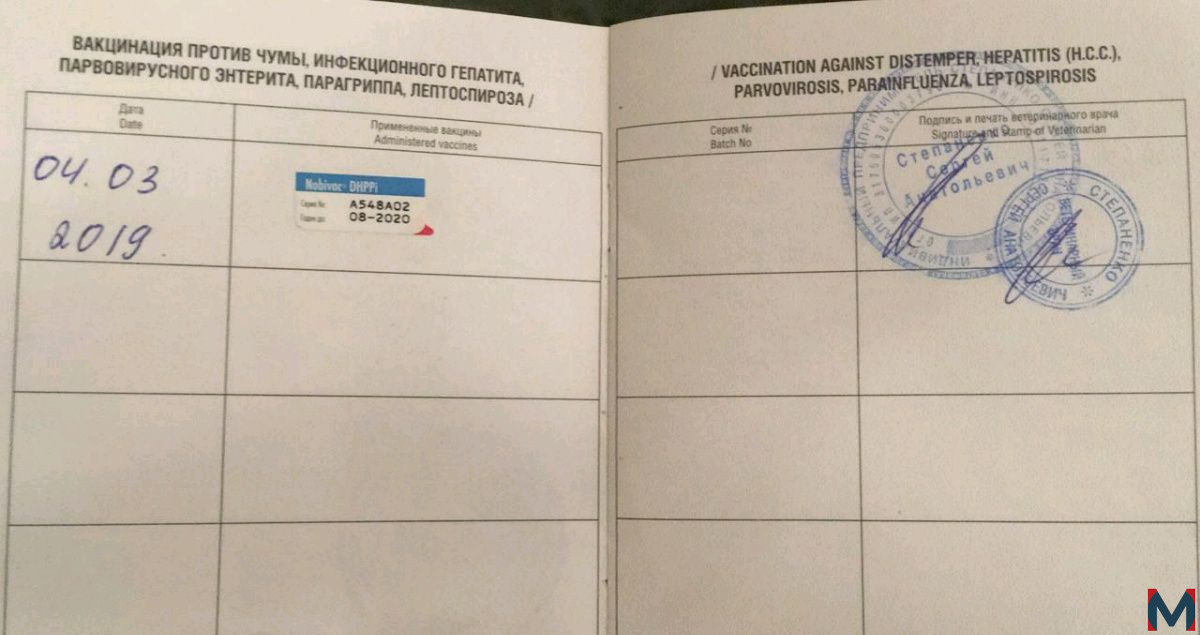 ВАКЦИНАЦИЯ ПРОТИВ ЧУМЫ, ИНФЕКЦИОННОГО ГЕПАТИТА,
ПАРВОВИРУСНОГО ЭНТЕРИТА, ПАРАГРИППА, ЛЕПТОСПИРОЗА /
Дата
Date
Примененные вакцины
Administered vaccines
04.03
2019.
Nobivac DHPPi
Серия №: A548A02
Годен до: 08-2020
/ VACCINATION AGAINST DISTEMPER, HEPATITIS (H.C.C.),
PARVOVIROSIS, PARAINFLUENZA, LEPTOSPIROSIS
Серия №
Batch No
Подпись и печать ветеринарного врача
Signature and Stamp of Veterinarian
Степаненко
Сергей
Анатольевич
СТЕПАНЕНКО
СЕРГЕЙ
M